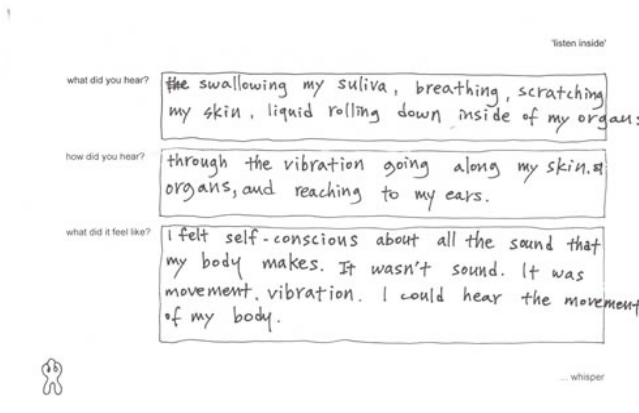 'listen inside'
what did you hear?
the swallowing my suliva, breathing, scratching
my skin, liquid rolling down inside of my organs
how did you hear?
through the vibration going along my skin. &
organs, and reaching to my ears.
what did it feel like?
I felt self-conscious about all the sound that
my body makes. It wasn't sound. It was
movement, vibration. I could hear the movement
of my body.
... whisper